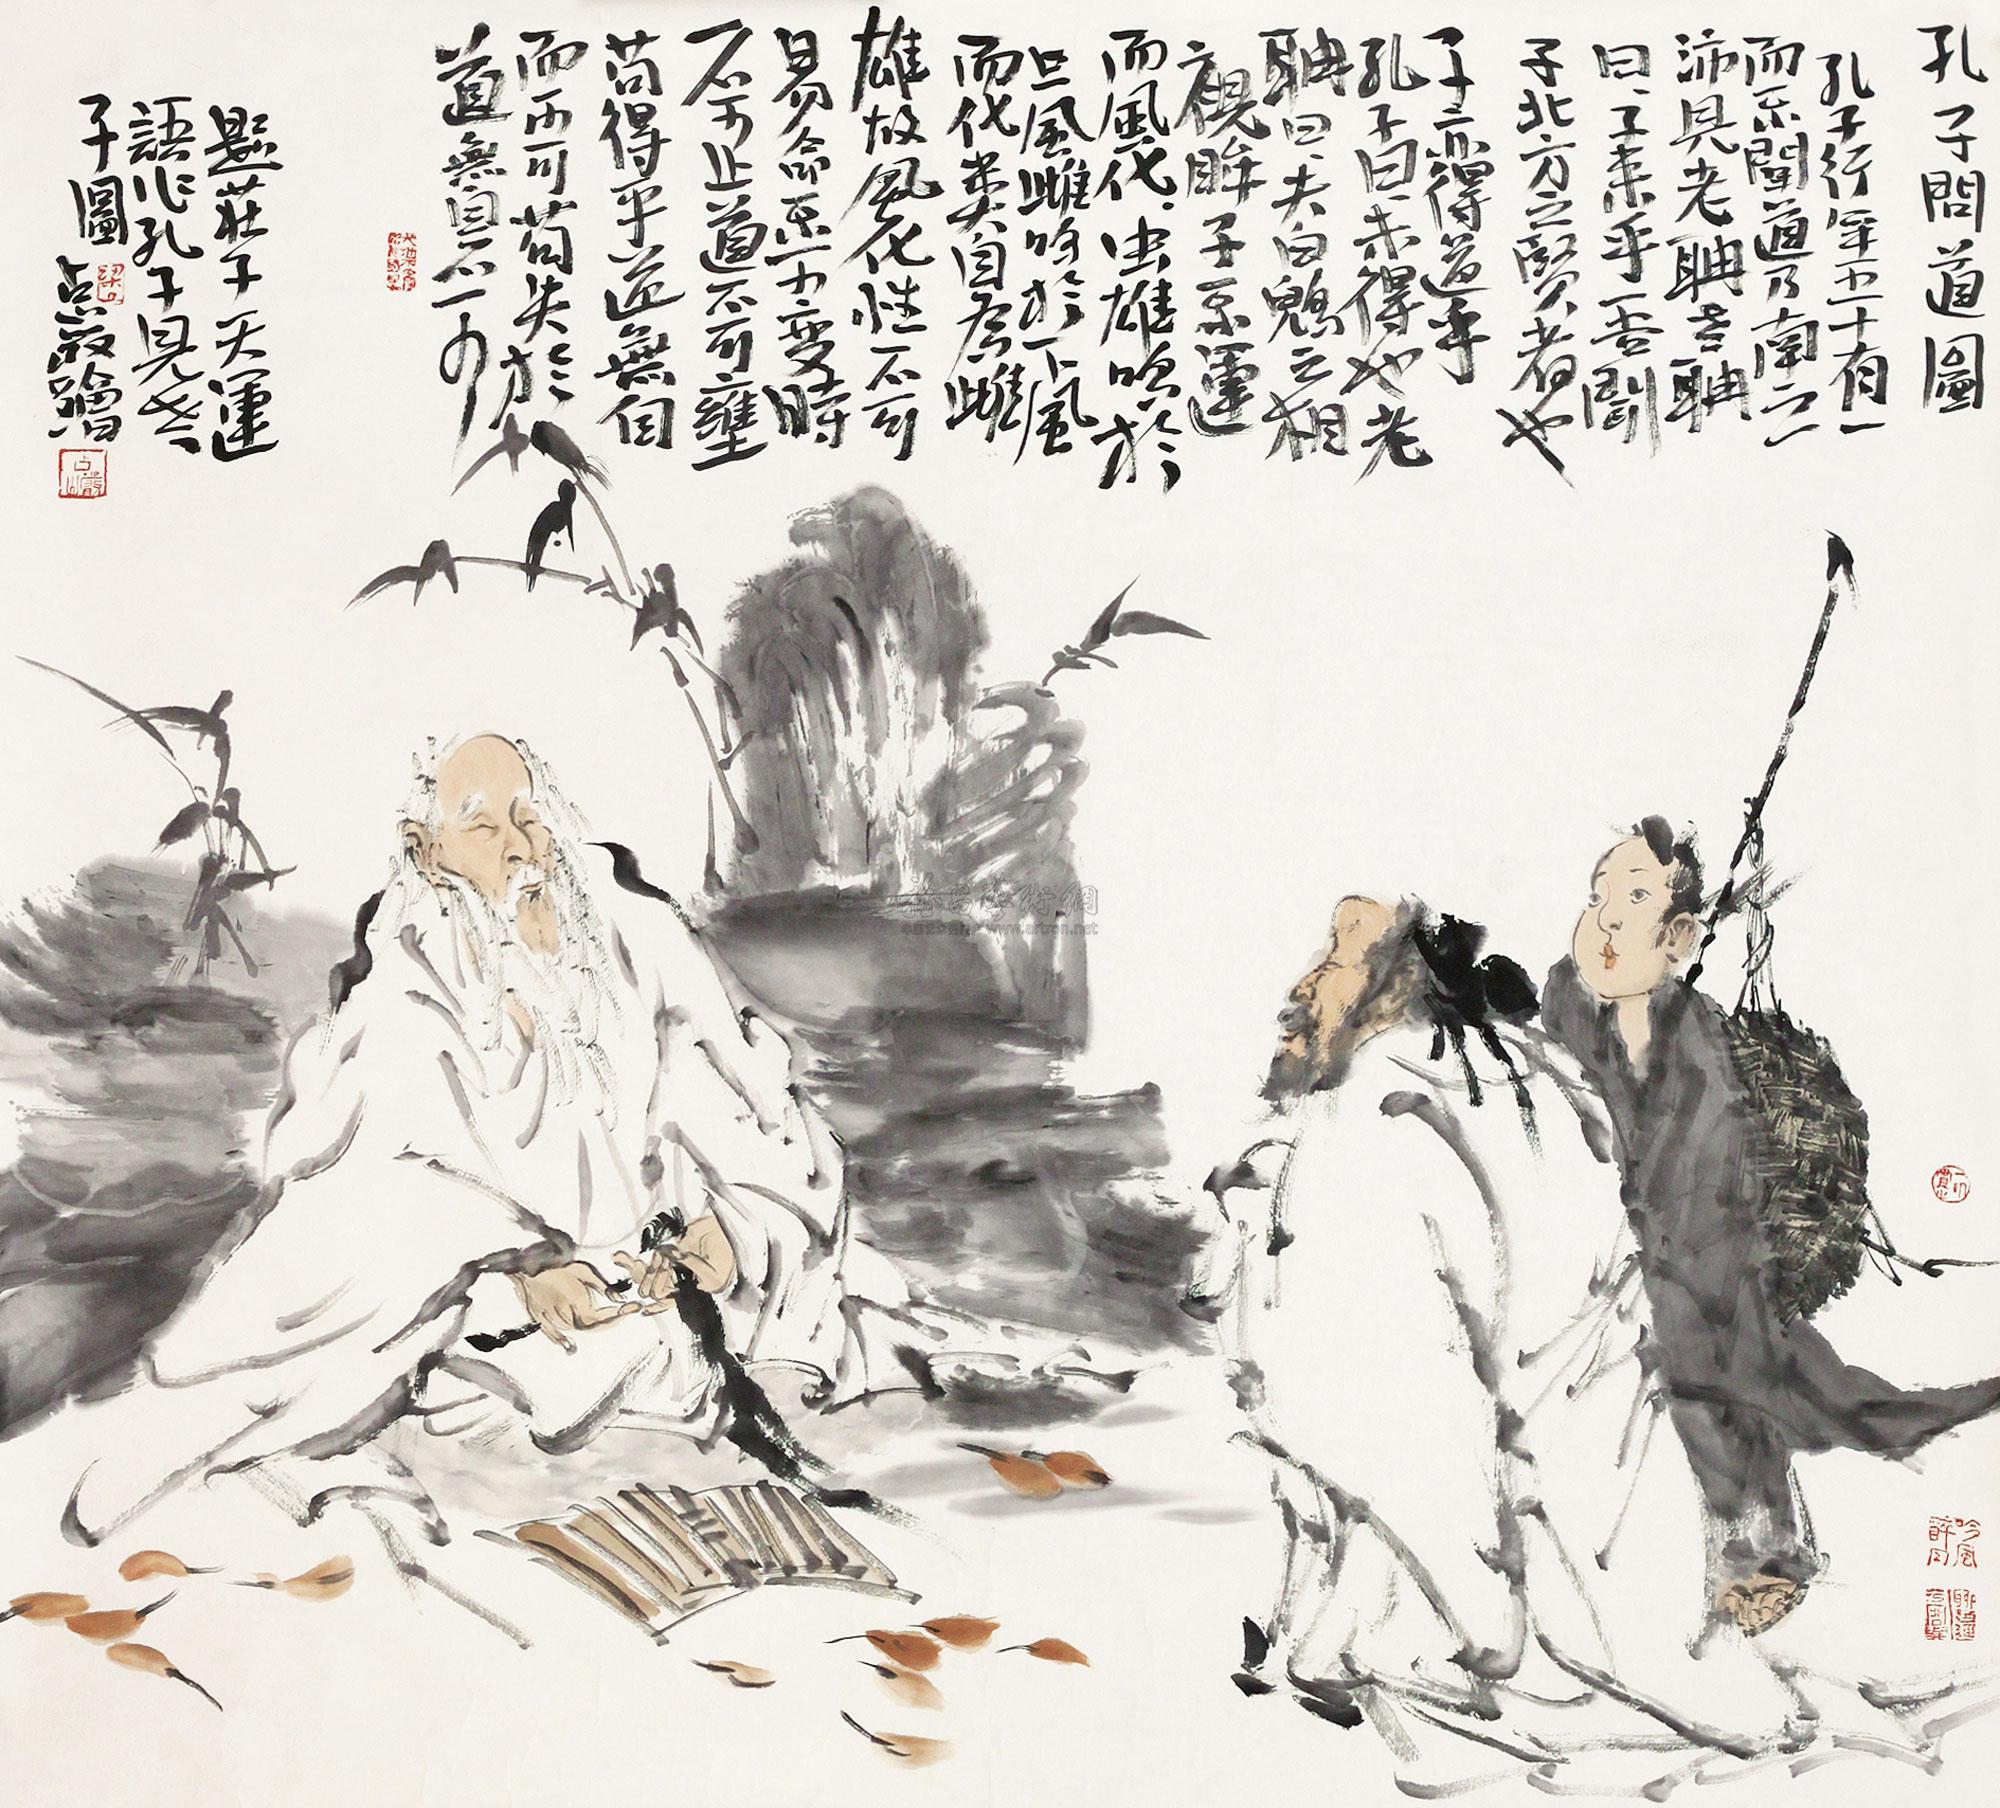 孔子問道圖
孔子行年五十有一
而不聞道乃南之
沛見老聃老聃
曰子來乎吾聞
子北方之賢者也
子亦得道乎
孔子曰未得也老
聃曰夫白鶂之相
視眸子不運
而風化虫雄鳴於
上風雌鳴於下風
而化类自為雌
雄故風化性不可
易命不可變時
不可止道不可壅
苟得乎道無自
而不可苟失於
道無自而可
題莊子天運
語作孔子見老
子圖占巖
www.artron.net